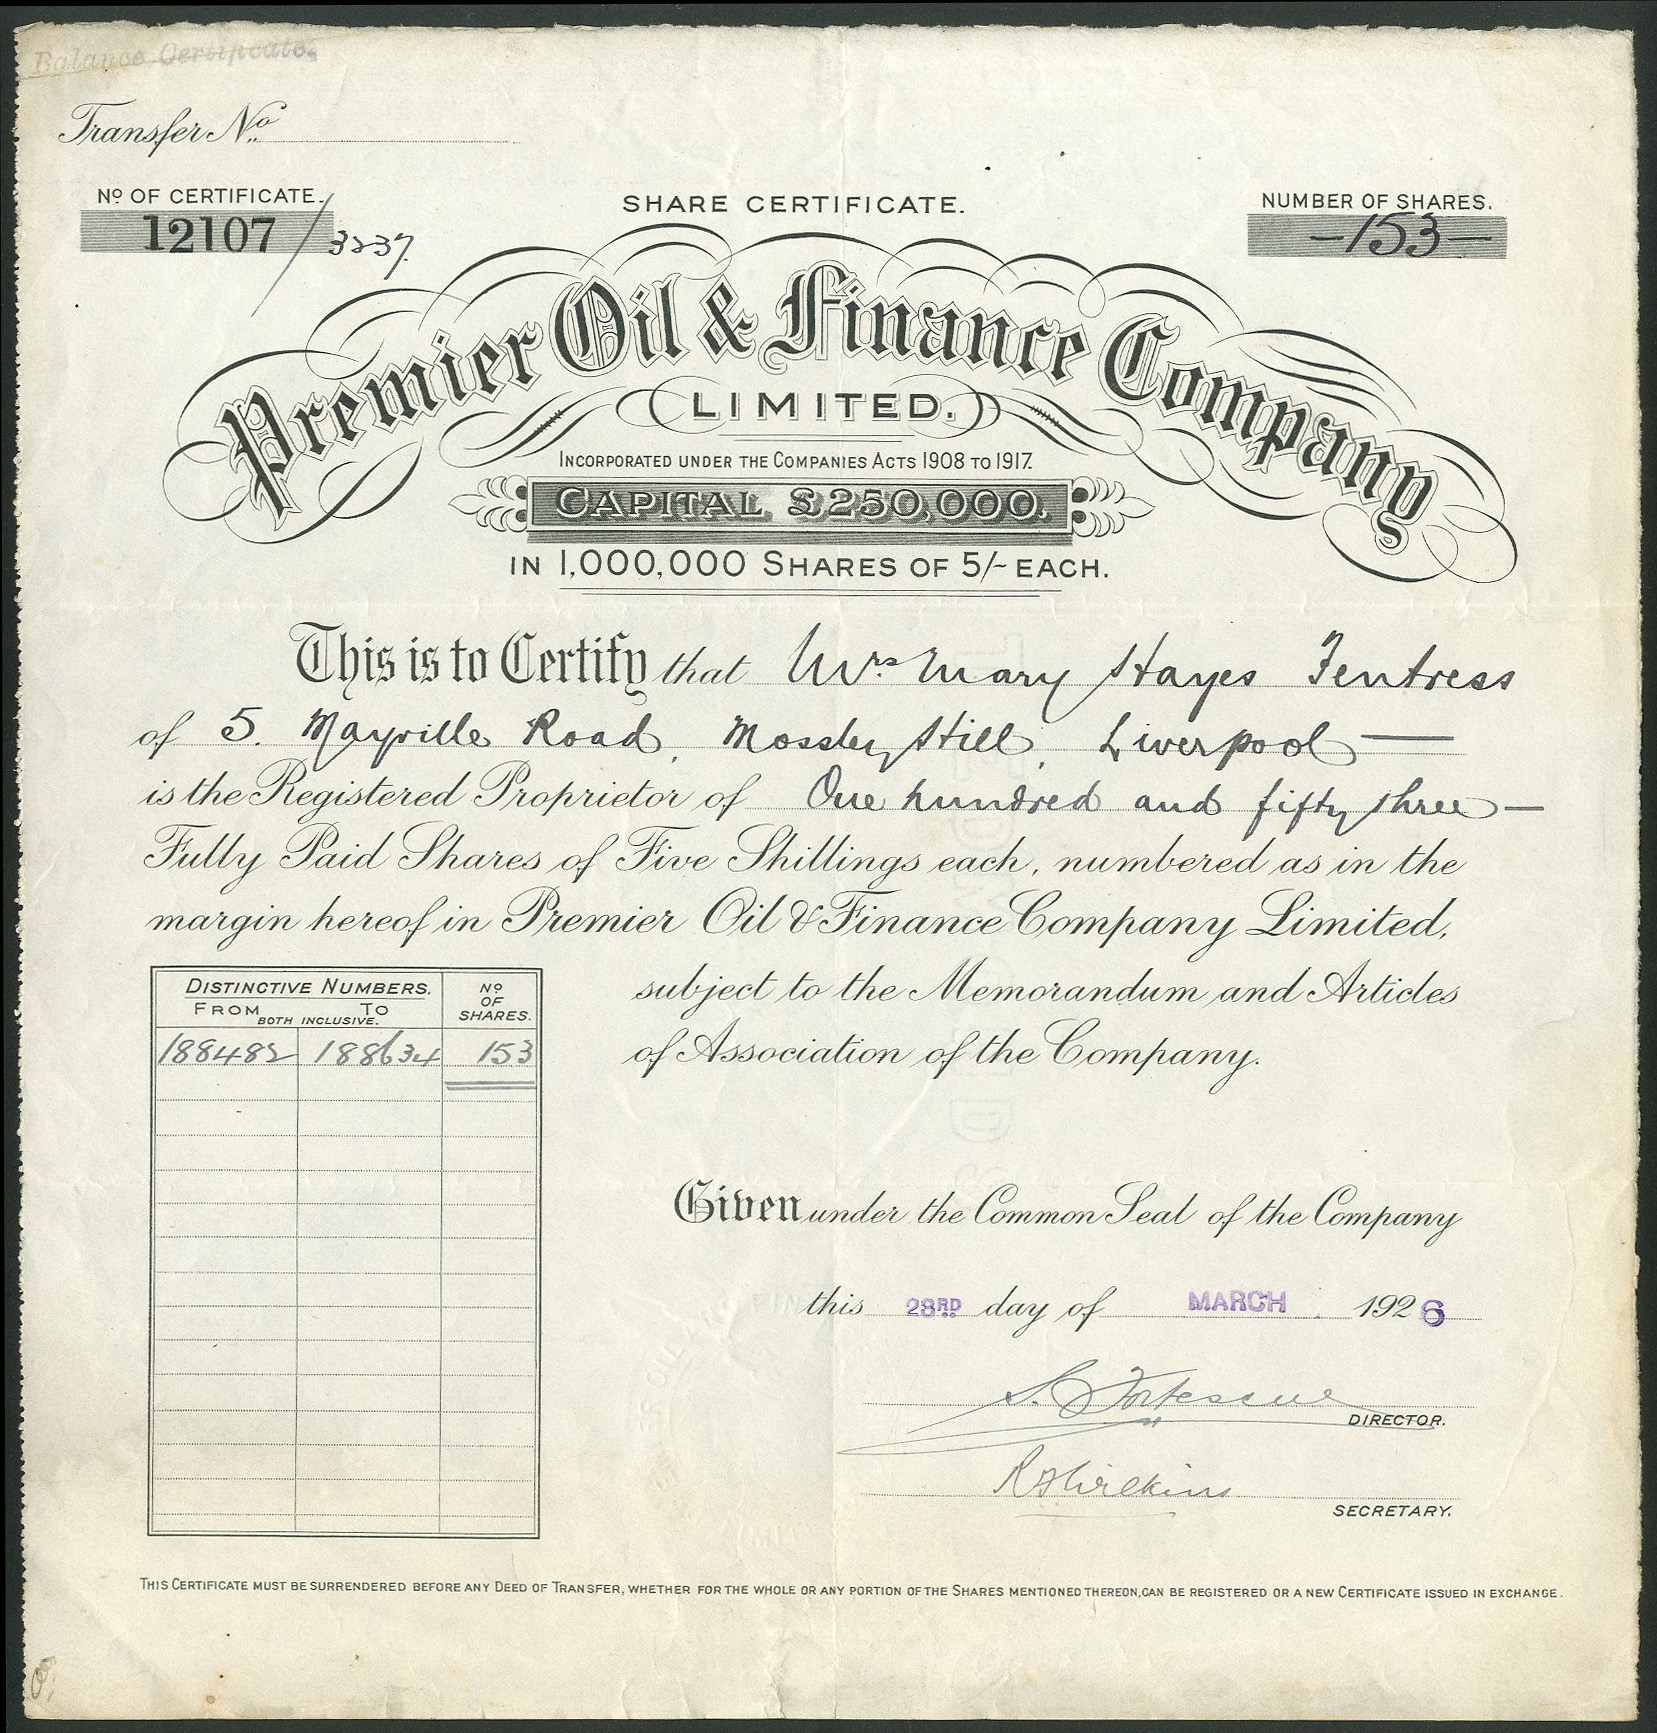 Balance Certificate.
Transfer No.
No OF CERTIFICATE.
12107 / 3237.
SHARE CERTIFICATE.
NUMBER OF SHARES.
—153—
Premier Oil & Finance Company
LIMITED.
INCORPORATED UNDER THE COMPANIES ACTS 1908 TO 1917.
CAPITAL £250,000.
IN 1,000,000 SHARES OF 5/- EACH.
This is to Certify that Mrs Mary Hayes Fentress
of 5. Mayville Road, Mossley Hill, Liverpool —
is the Registered Proprietor of One hundred and fifty three —
Fully Paid Shares of Five Shillings each, numbered as in the
margin hereof in Premier Oil & Finance Company Limited,
subject to the Memorandum and Articles
of Association of the Company.
DISTINCTIVE NUMBERS.
FROM TO
BOTH INCLUSIVE.
No
OF
SHARES.
188482 188634 153
Given under the Common Seal of the Company
this 23RD day of MARCH . 1926
S. Fortescue
DIRECTOR.
R A Wilkins
SECRETARY.
THIS CERTIFICATE MUST BE SURRENDERED BEFORE ANY DEED OF TRANSFER, WHETHER FOR THE WHOLE OR ANY PORTION OF THE SHARES MENTIONED THEREON, CAN BE REGISTERED OR A NEW CERTIFICATE ISSUED IN EXCHANGE.